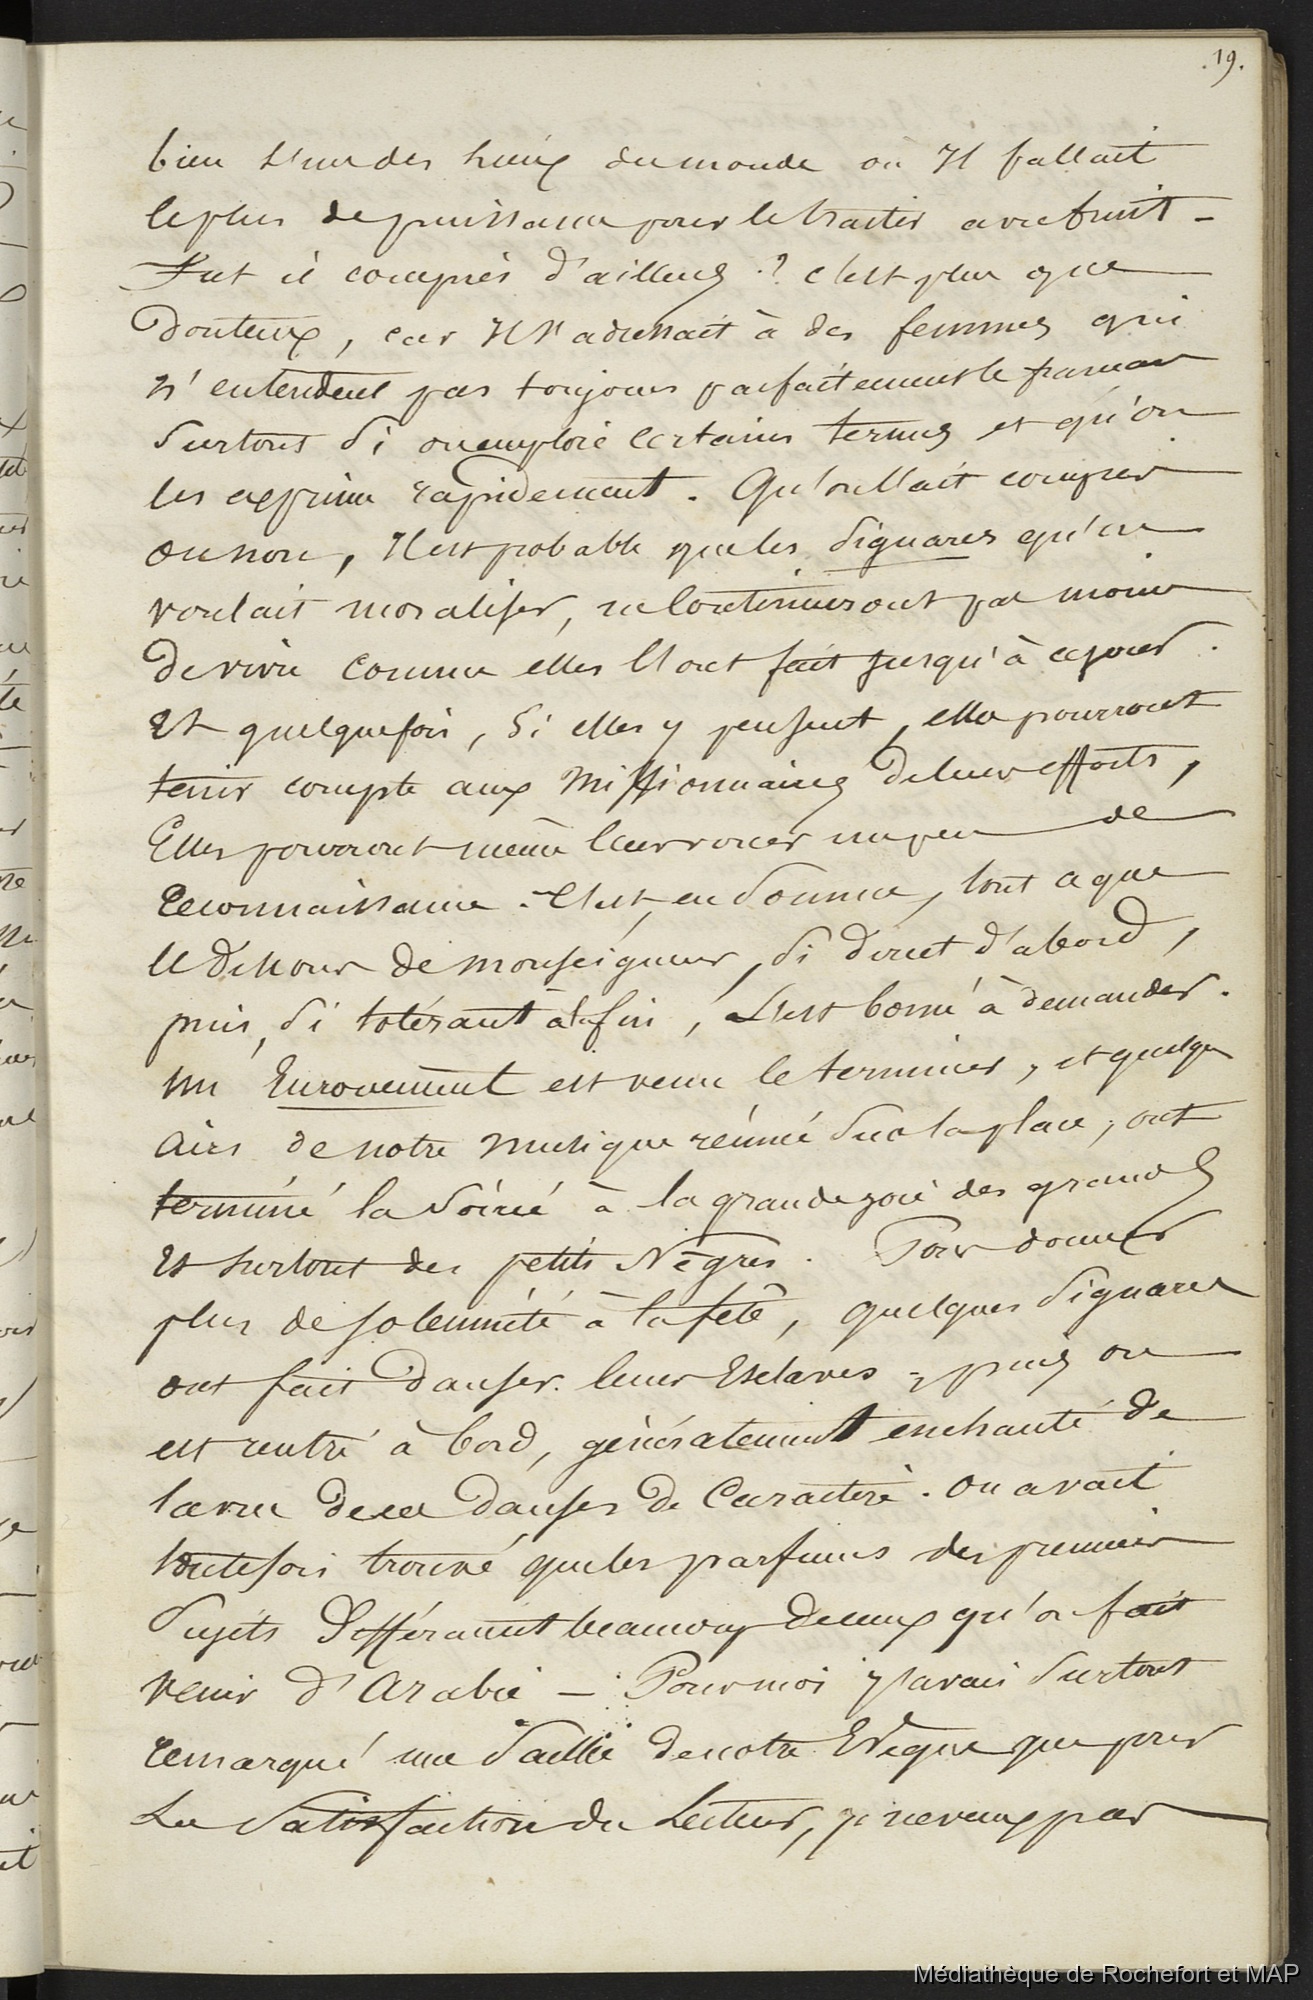 .19.
bien l'un des lieux du monde où Il fallait
le plus de puissance pour le traiter avec fruit -
Fut il compris d'ailleurs ? c'est plus que
Douteux, car Il s'adressait à des femmes qui
n'entendent pas toujours parfaitement le français
surtout si on emploie certains termes et qu'on
les exprime rapidement. Qu'on l'ait compris
ou non, Il est probable que les Signares qu'on
voulait moraliser, ne continueront pas moins
De vivre comme elles l'ont fait jusqu'à ce jour.
Et quelquefois, si elles y pensent, elles pourront
tenir compte aux Missionnaires de leurs efforts,
Elles pourront même leur vouer un peu de
reconnaissance. C'est, en somme, tout ce que
le discours de monseigneur, si direct d'abord,
puis, si tolérant à la fin, s'est borné à demander.
un Enrouement est venu le terminer, et quelques
airs de notre musique réunie sur la place, ont
terminé la soirée à la grande joie des grands
Et surtout des petits Nègres. Pour donner
plus de solennité à la fête, quelques Signares
ont fait danser leurs Esclaves ; puis on
est rentré à bord, généralement enchanté de
la vue de ces danses de Caractère. On avait
toutefois trouvé que les parfums des premiers
Sujets Différaient beaucoup de ceux qu'on fait
venir d'Arabie — Pour moi j'avais surtout
remarqué une saillie de notre Evêque que pour
La Satisfaction du Lecteur, je ne veux pas
Médiathèque de Rochefort et MAP